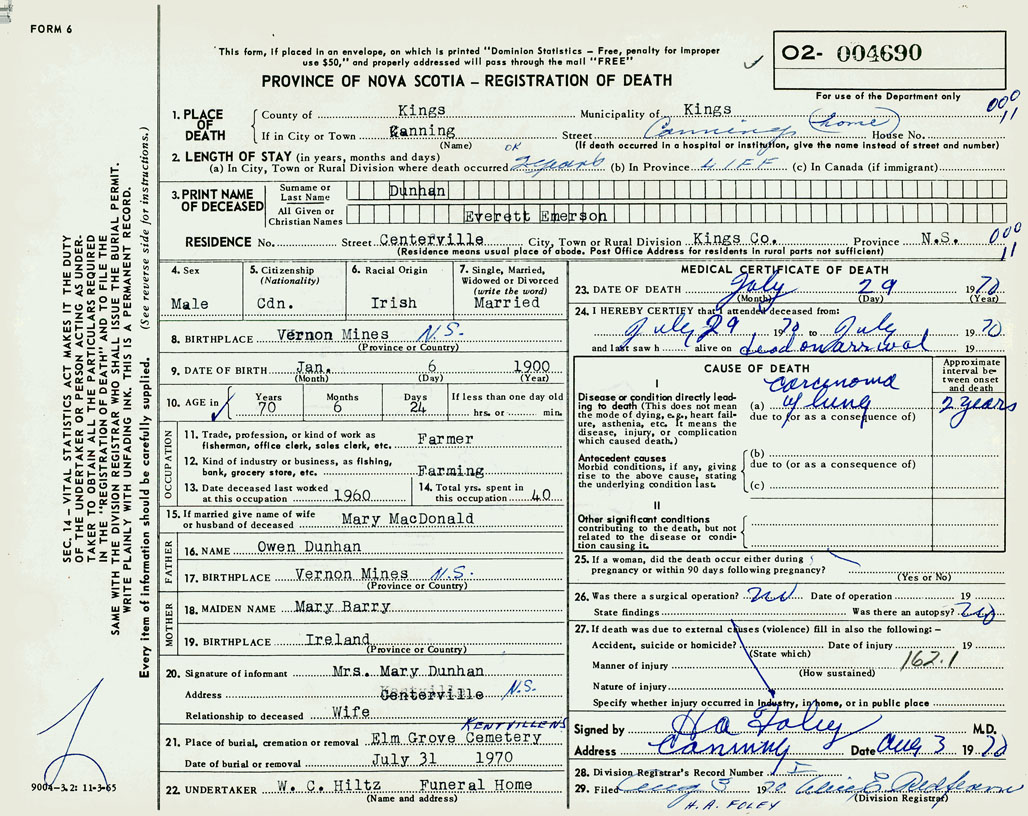 FORM 6
"This form, if placed in an envelope, on which is printed "Dominion Statistics – Free, penalty for improper
use $50," and properly addressed will pass through the mail "FREE"
PROVINCE OF NOVA SCOTIA – REGISTRATION OF DEATH
O2- 004690
For use of the Department only
SEC. 14 – VITAL STATISTICS ACT MAKES IT THE DUTY
OF THE UNDERTAKER OR PERSON ACTING AS UNDER-
TAKER TO OBTAIN ALL THE PARTICULARS REQUIRED
IN THE "REGISTRATION OF DEATH" AND TO FILE THE
SAME WITH THE DIVISION REGISTRAR WHO SHALL ISSUE THE BURIAL PERMIT.
WRITE PLAINLY WITH UNFADING INK. THIS IS A PERMANENT RECORD.
Every item of information should be carefully supplied. (See reverse side for instructions.)
1. PLACE OF DEATH
County of Kings Municipality of Kings 000 11
If in City or Town Canning Street Canning (home) House No.
(Name) (If death occurred in a hospital or institution, give the name instead of street and number)
2. LENGTH OF STAY (in years, months and days) OR
(a) In City, Town or Rural Division where death occurred 2 years (b) In Province LIFE (c) In Canada (if immigrant)
3. PRINT NAME OF DECEASED
Surname or Last Name Dunhan
All Given or Christian Names Everett Emerson
RESIDENCE No. Street Centerville City, Town or Rural Division Kings Co. Province N.S. 000 11
(Residence means usual place of abode. Post Office Address for residents in rural parts not sufficient)
4. Sex Male
5. Citizenship (Nationality) Cdn.
6. Racial Origin Irish
7. Single, Married, Widowed or Divorced (write the word) Married
8. BIRTHPLACE Vernon Mines N.S.
(Province or Country)
9. DATE OF BIRTH Jan. 6 1900
(Month) (Day) (Year)
10. AGE in Years 70 Months 6 Days 24 If less than one day old hrs. or min.
OCCUPATION
11. Trade, profession, or kind of work as fisherman, office clerk, sales clerk, etc. Farmer
12. Kind of industry or business, as fishing, bank, grocery store, etc. Farming
13. Date deceased last worked at this occupation 1960
14. Total yrs. spent in this occupation 40
15. If married give name of wife or husband of deceased Mary MacDonald
FATHER
16. NAME Owen Dunhan
17. BIRTHPLACE Vernon Mines N.S.
(Province or Country)
MOTHER
18. MAIDEN NAME Mary Barry
19. BIRTHPLACE Ireland
(Province or Country)
20. Signature of informant Mrs. Mary Dunhan
Address Centerville N.S.
Relationship to deceased Wife
KENTVILLE NS
21. Place of burial, cremation or removal Elm Grove Cemetery
Date of burial or removal July 31 1970
22. UNDERTAKER W. C. Hiltz Funeral Home
(Name and address)
9004-3.2: 11-3-65
MEDICAL CERTIFICATE OF DEATH
23. DATE OF DEATH July 29 1970
(Month) (Day) (Year)
24. I HEREBY CERTIFY that I attended deceased from:
July 29 1970 to July 1970
and last saw h alive on dead on arrival 19
CAUSE OF DEATH
Approximate interval between onset and death
I
Disease or condition directly leading to death (This does not mean the mode of dying, e.g., heart failure, asthenia, etc. It means the disease, injury, or complication which caused death.)
(a) carcinoma of lung 2 years
due to (or as a consequence of)
Antecedent causes
Morbid conditions, if any, giving rise to the above cause, stating the underlying condition last.
(b)
due to (or as a consequence of)
(c)
II
Other significant conditions contributing to the death, but not related to the disease or condition causing it.
25. If a woman, did the death occur either during pregnancy or within 90 days following pregnancy?
(Yes or No)
26. Was there a surgical operation? no Date of operation 19
State findings Was there an autopsy? no
27. If death was due to external causes (violence) fill in also the following: –
Accident, suicide or homicide? Date of injury 19
(State which) 162.1
Manner of injury
(How sustained)
Nature of injury
Specify whether injury occurred in industry, in home, or in public place
Signed by H A Foley M.D.
Address Canning Date Aug 3 1970
28. Division Registrar's Record Number
29. Filed Aug 3 1970 Alice E. Redfearn
H. A. FOLEY (Division Registrar)